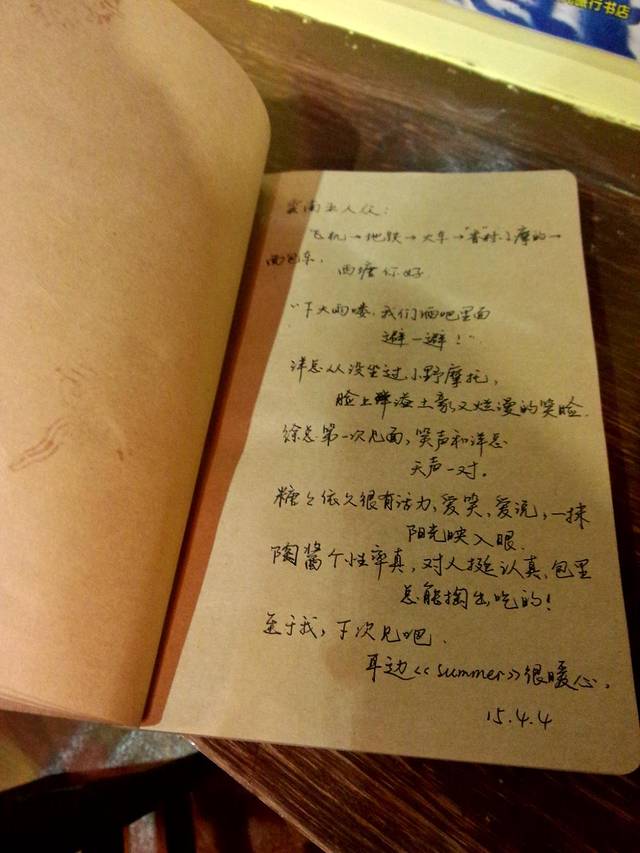 旅行书店
雲南五人众:
飞机→地铁→火车→摩的→
面包车.
西塘你好
"下大雨喽,我们酒吧里面
避一避!"
洋总从没坐过小野摩托,
脸上洋溢土豪又烂漫的笑脸.
徐总第一次见面,笑声和洋总
天声一对.
糖々依久很有活力,爱笑,爱说,一抹
阳光映入眼.
陶酱个性率真,对人挺认真,包里
总能掏出吃的!
至于我,下次见吧.
耳边<<summer>>很暖心.
15.4.4